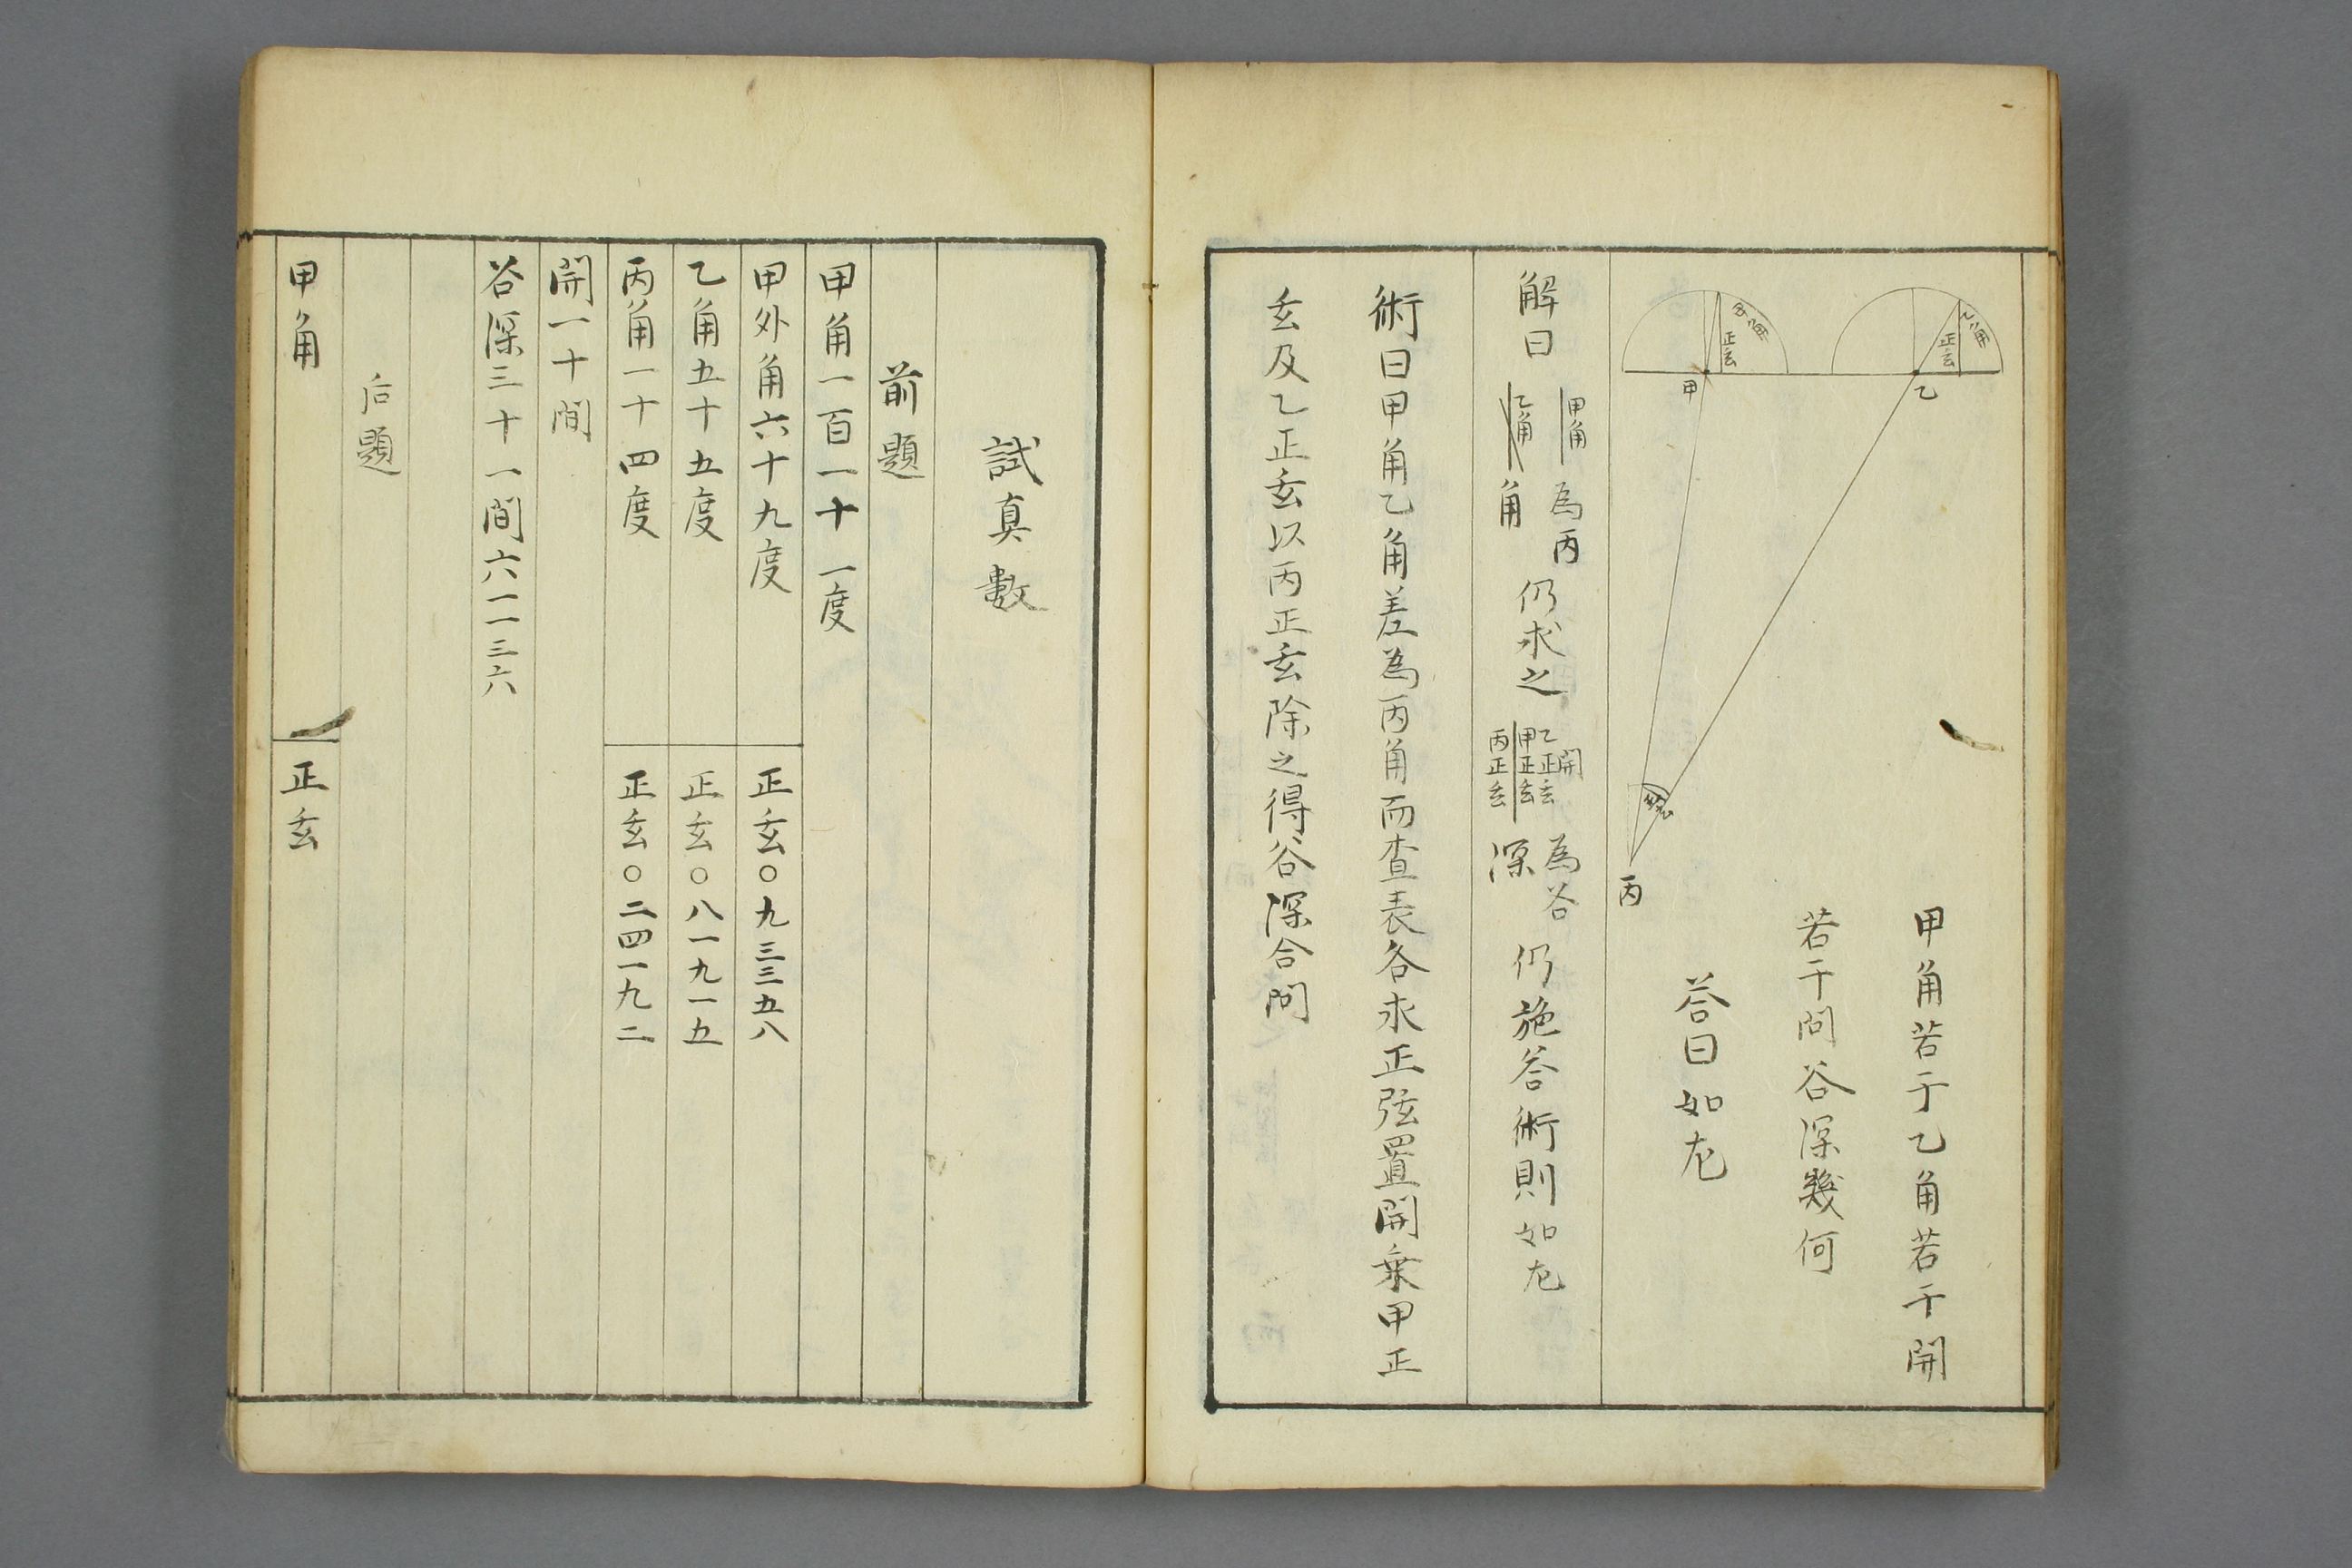 甲角
正玄
乙角
正玄
甲
乙
丙
甲角若于乙角若干開
若干問谷深幾何
答曰如左
解曰
甲角
乙角
為丙
角
仍求之
開
乙正玄
甲正玄
丙正玄
為谷
深
仍施答術則如左
術曰甲角乙角差為丙角而查表各求正弦置開乗甲正
玄及乙正玄以丙正玄除之得谷深合問
試真數
前題
甲角一百一十一度
甲外角六十九度
正玄〇九三三五八
乙角五十五度
正玄〇八一九一五
丙角一十四度
正玄〇二四一九二
開一十間
谷深三十一間六一一三六
后題
甲角
正玄